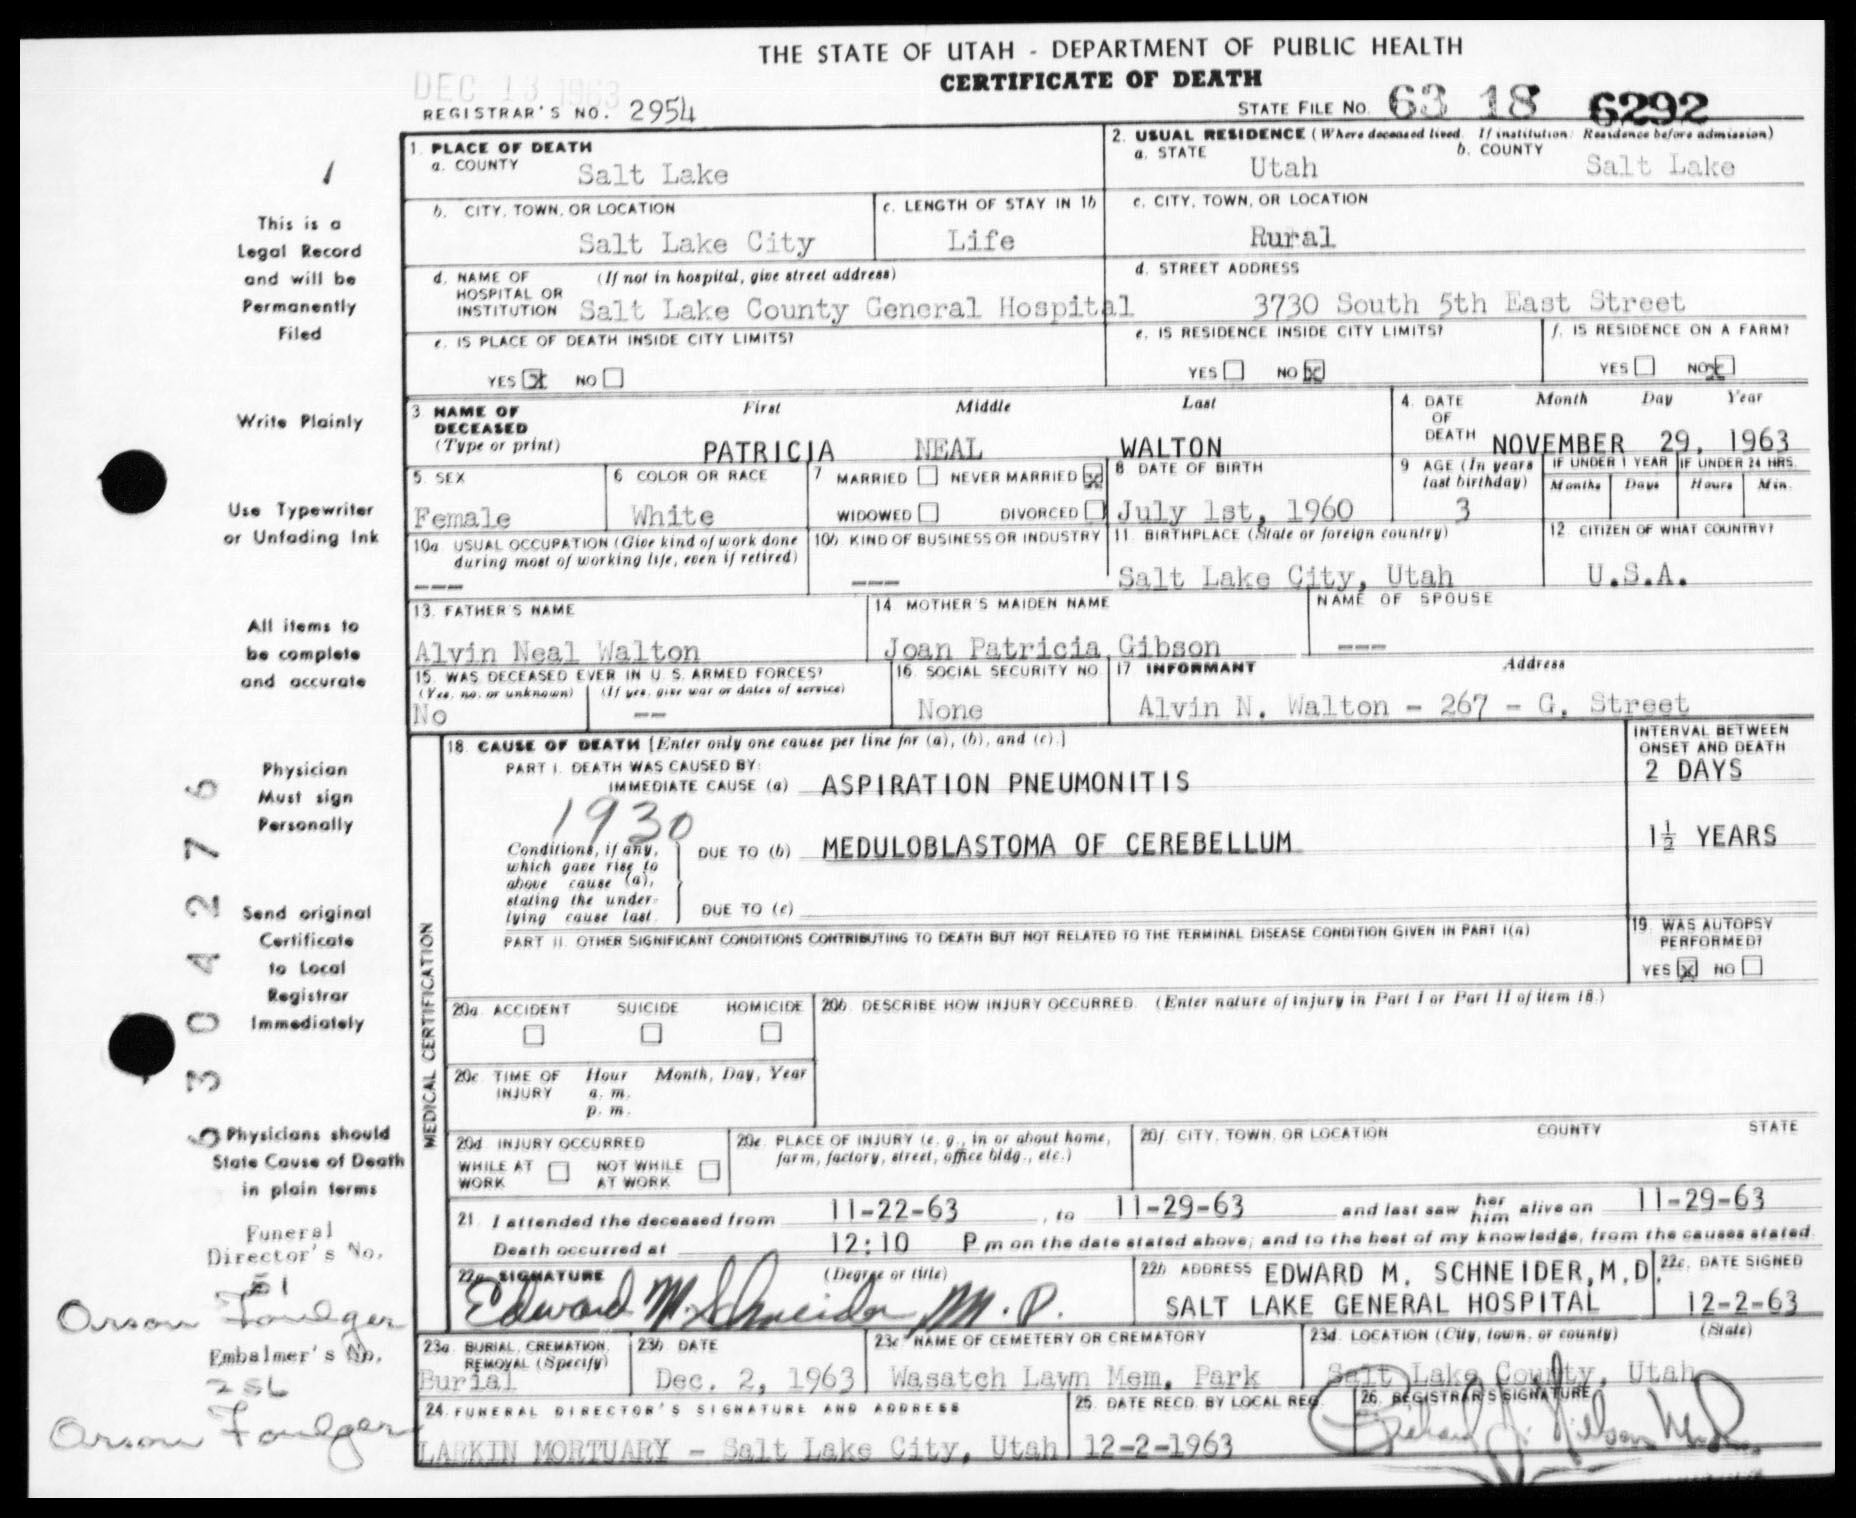 THE STATE OF UTAH - DEPARTMENT OF PUBLIC HEALTH
CERTIFICATE OF DEATH
DEC 13 1963
REGISTRAR'S NO. 2954
STATE FILE NO. 63 18 6292
1. PLACE OF DEATH
a. COUNTY Salt Lake
2. USUAL RESIDENCE (Where deceased lived. If institution: Residence before admission)
a. STATE Utah b. COUNTY Salt Lake
b. CITY, TOWN, OR LOCATION Salt Lake City
c. LENGTH OF STAY IN 1b Life
c. CITY, TOWN, OR LOCATION Rural
d. NAME OF HOSPITAL OR INSTITUTION (If not in hospital, give street address) Salt Lake County General Hospital
d. STREET ADDRESS 3730 South 5th East Street
e. IS PLACE OF DEATH INSIDE CITY LIMITS?
YES X NO
e. IS RESIDENCE INSIDE CITY LIMITS?
YES NO X
f. IS RESIDENCE ON A FARM?
YES NO X
3 NAME OF DECEASED (Type or print)
First Middle Last
PATRICIA NEAL WALTON
4. DATE OF DEATH Month Day Year
NOVEMBER 29, 1963
5. SEX Female
6 COLOR OR RACE White
7 MARRIED NEVER MARRIED X
WIDOWED DIVORCED
8 DATE OF BIRTH July 1st, 1960
9 AGE (In years last birthday) 3
IF UNDER 1 YEAR Months Days
IF UNDER 24 HRS. Hours Min.
10a. USUAL OCCUPATION (Give kind of work done during most of working life, even if retired) ---
10b. KIND OF BUSINESS OR INDUSTRY ---
11. BIRTHPLACE (State or foreign country) Salt Lake City, Utah
12. CITIZEN OF WHAT COUNTRY? U.S.A.
13. FATHER'S NAME Alvin Neal Walton
14. MOTHER'S MAIDEN NAME Joan Patricia Gibson
NAME OF SPOUSE ---
15. WAS DECEASED EVER IN U. S. ARMED FORCES?
(Yes, no, or unknown) No
(If yes, give war or dates of service) --
16. SOCIAL SECURITY NO. None
17 INFORMANT Address
Alvin N. Walton - 267 - G. Street
MEDICAL CERTIFICATION
18. CAUSE OF DEATH [Enter only one cause per line for (a), (b), and (c).]
INTERVAL BETWEEN ONSET AND DEATH
PART I. DEATH WAS CAUSED BY:
IMMEDIATE CAUSE (a) ASPIRATION PNEUMONITIS 2 DAYS
1930
Conditions, if any, which gave rise to above cause (a), stating the underlying cause last.
DUE TO (b) MEDULOBLASTOMA OF CEREBELLUM 1½ YEARS
DUE TO (c)
PART II. OTHER SIGNIFICANT CONDITIONS CONTRIBUTING TO DEATH BUT NOT RELATED TO THE TERMINAL DISEASE CONDITION GIVEN IN PART I(a)
19. WAS AUTOPSY PERFORMED?
YES X NO
20a. ACCIDENT SUICIDE HOMICIDE
20b. DESCRIBE HOW INJURY OCCURRED. (Enter nature of injury in Part I or Part II of item 18.)
20c. TIME OF INJURY Hour a. m. p. m. Month, Day, Year
20d. INJURY OCCURRED
WHILE AT WORK NOT WHILE AT WORK
20e. PLACE OF INJURY (e. g., in or about home, farm, factory, street, office bldg., etc.)
20f. CITY, TOWN, OR LOCATION COUNTY STATE
21. I attended the deceased from 11-22-63, to 11-29-63 and last saw her him alive on 11-29-63
Death occurred at 12:10 P m on the date stated above; and to the best of my knowledge, from the causes stated.
22a. SIGNATURE (Degree or title)
Edward M. Schneider M.D.
22b. ADDRESS EDWARD M. SCHNEIDER, M.D.
SALT LAKE GENERAL HOSPITAL
22c. DATE SIGNED 12-2-63
23a. BURIAL, CREMATION, REMOVAL (Specify) Burial
23b. DATE Dec. 2, 1963
23c. NAME OF CEMETERY OR CREMATORY Wasatch Lawn Mem. Park
23d. LOCATION (City, town, or county) (State)
Salt Lake County, Utah
24. FUNERAL DIRECTOR'S SIGNATURE AND ADDRESS
LARKIN MORTUARY - Salt Lake City, Utah
25. DATE RECD. BY LOCAL REG. 12-2-1963
26. REGISTRAR'S SIGNATURE
1
This is a
Legal Record
and will be
Permanently
Filed
Write Plainly
Use Typewriter
or Unfading Ink
All items to
be complete
and accurate
Physician
Must sign
Personally
Send original
Certificate
to Local
Registrar
Immediately
Physicians should
State Cause of Death
in plain terms
Funeral
Director's No.
51
Orson Foulger
Embalmer's No.
256
Orson Foulger
5304276